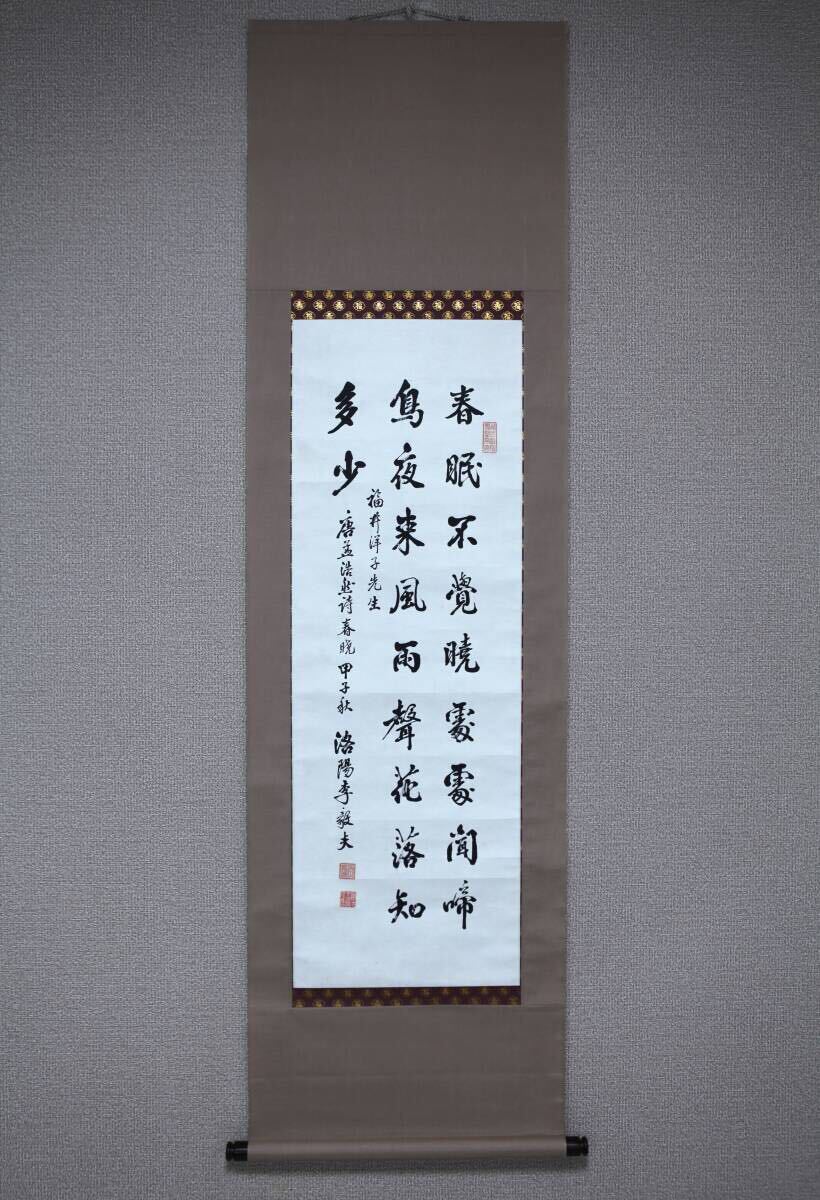 春眠不覺曉處處聞啼
鳥夜来風雨聲花落知
多少
福井洋子先生
唐孟浩然诗春晓 甲子秋 洛陽李毅夫